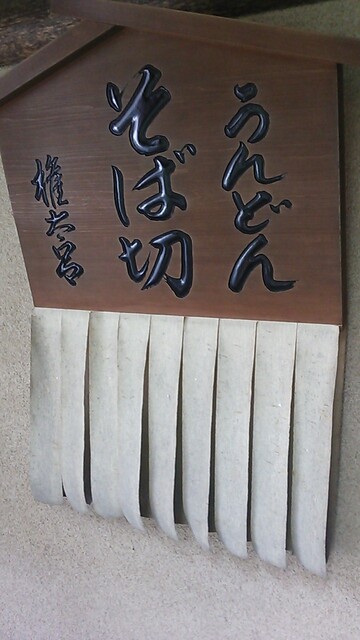 うんどん
そば切
権太呂